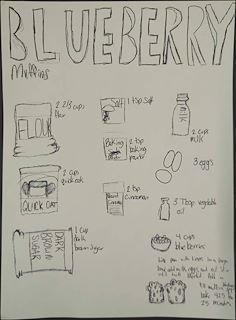 BLUEBERRY
Muffins
2 2/3 cups
flour
FLOUR
Salt
1 tsp salt
2 cups
milk
Baking
powder
2 tsp
baking
powder
3 eggs
2 cups
quick oat
QUICK OAT
2 tsp
Cinnamon
3 Tbsp vegetable
oil
1 cup
dark
brown sugar
DARK
BROWN
SUGAR
4 cups
blueberries
bake 425
25 minutes